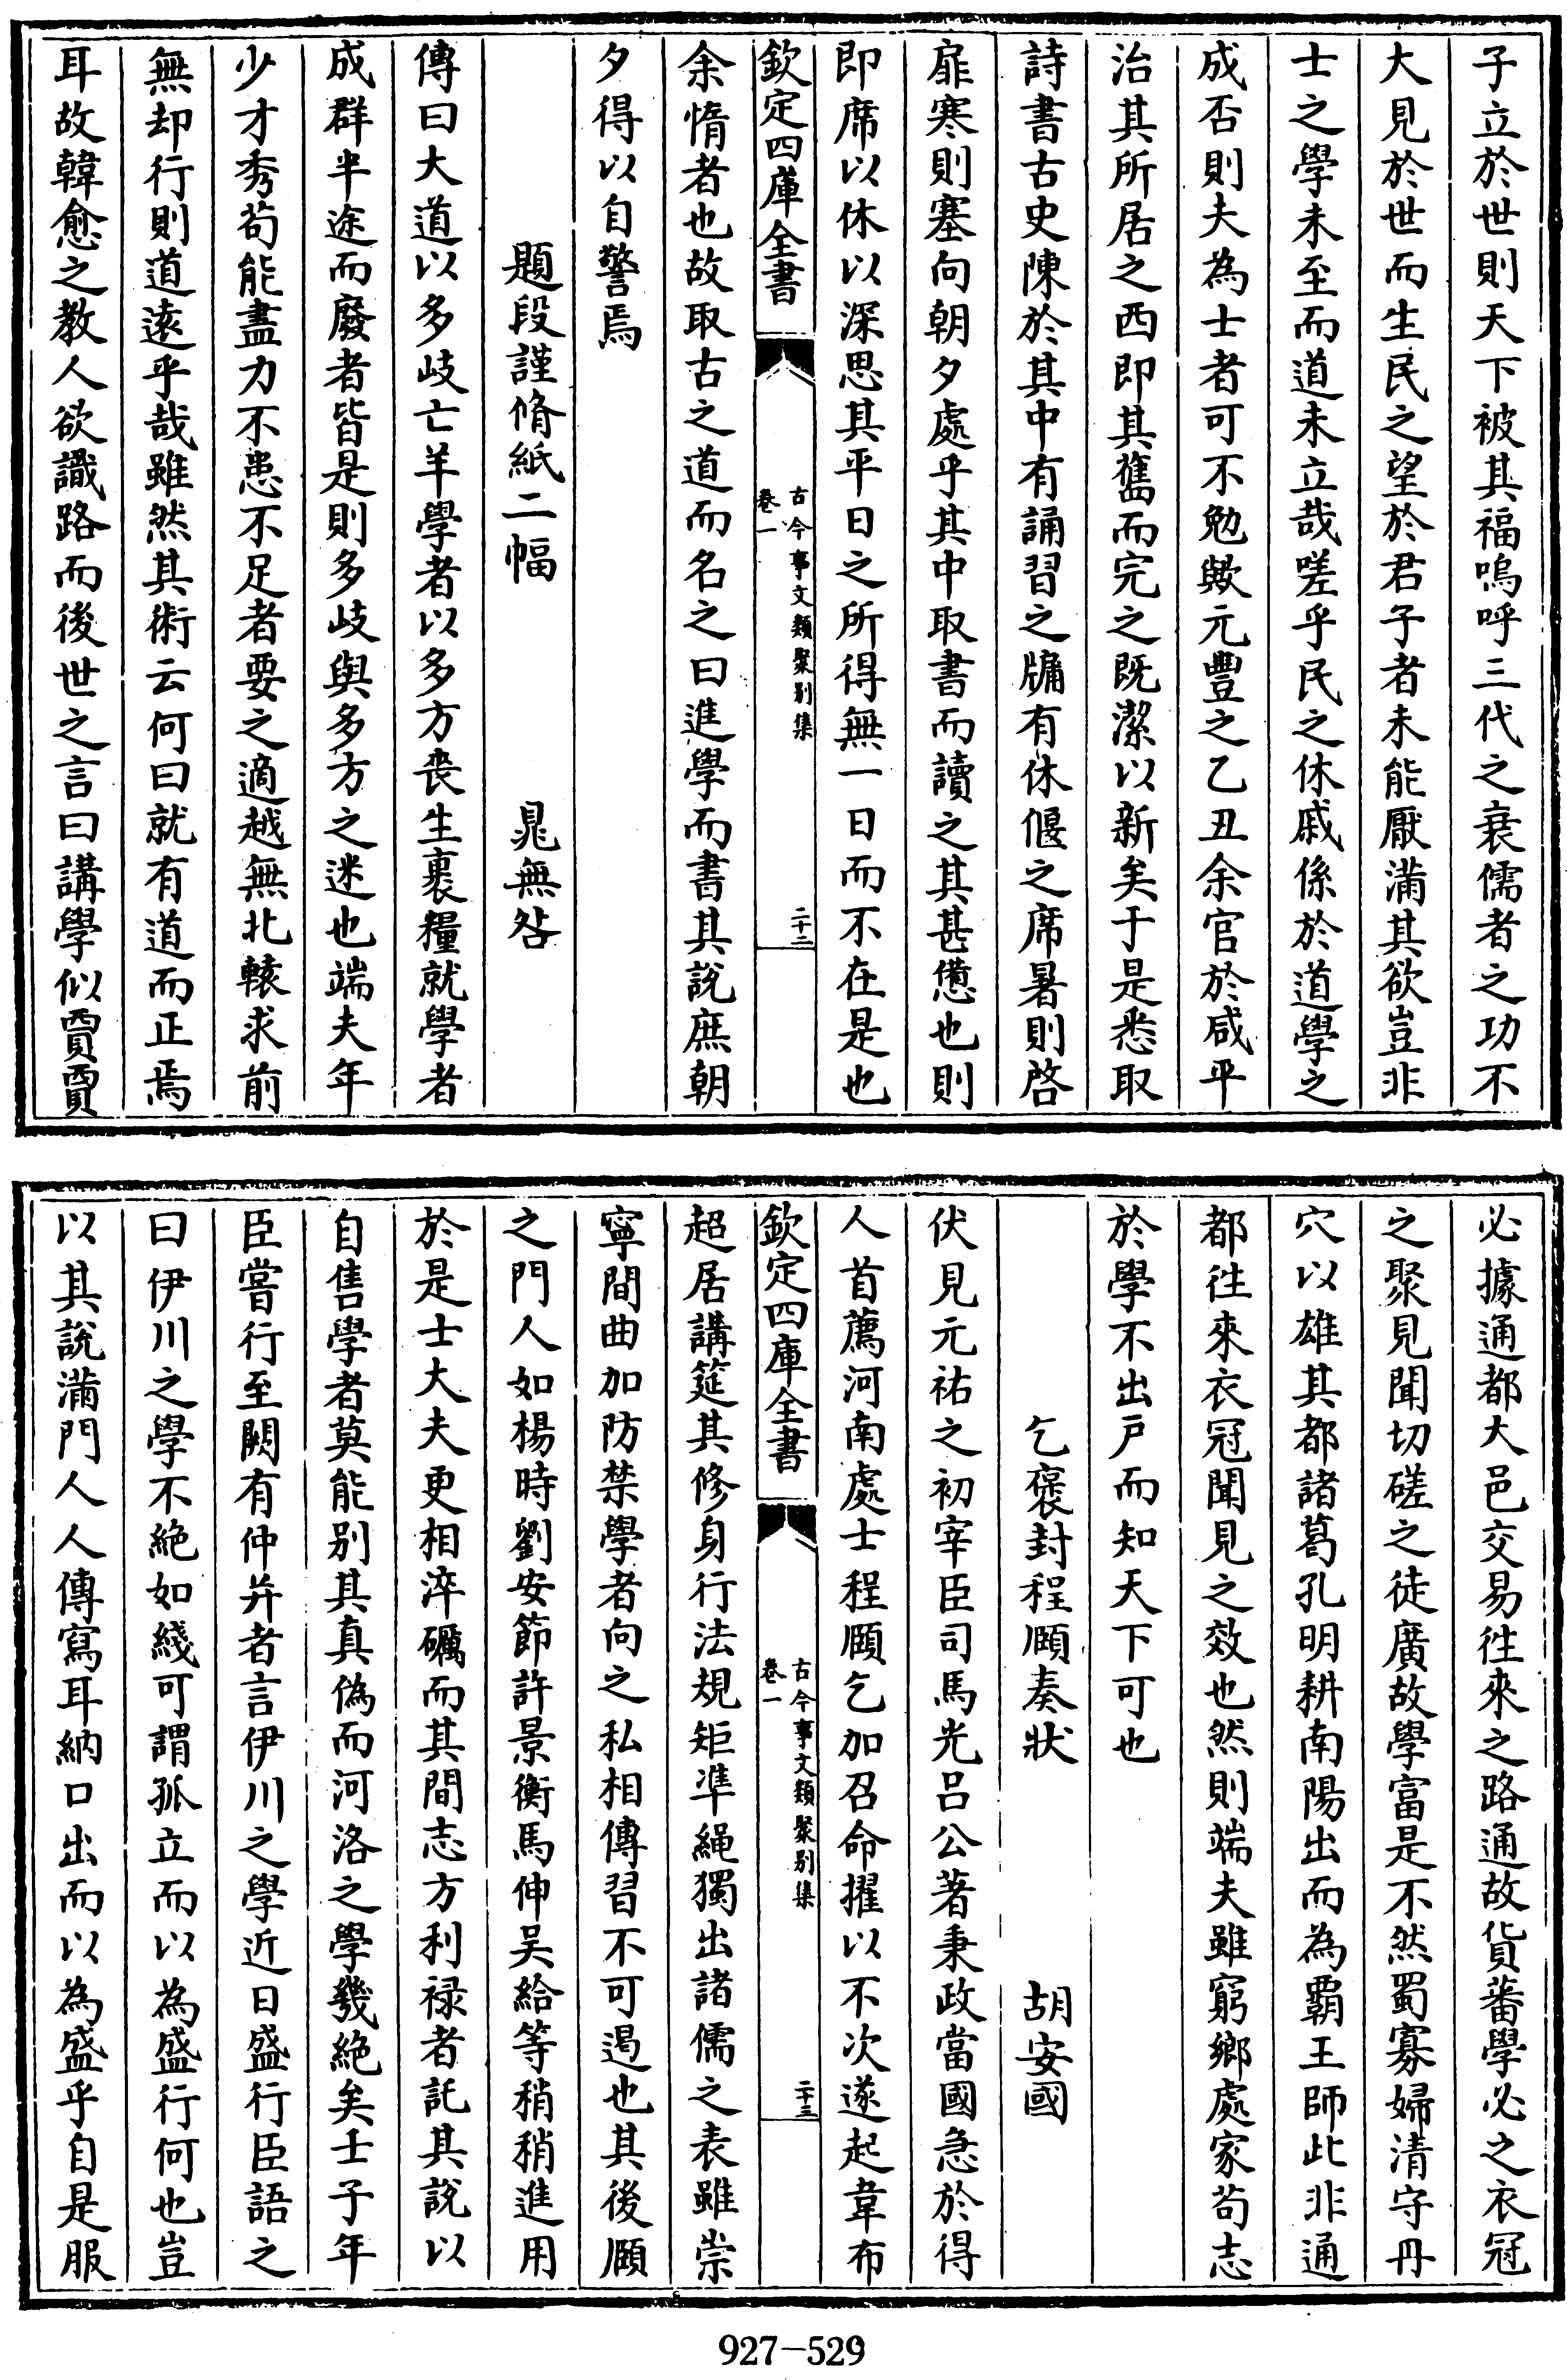 子立於世則天下被其福嗚呼三代之衰儒者之功不
大見於世而生民之望於君子者未能厭滿其欲豈非
士之學未至而道未立哉嗟乎民之休戚係於道學之
成否則夫為士者可不勉歟元豐之乙丑余官於咸平
治其所居之西即其舊而完之既潔以新矣于是悉取
詩書古史陳於其中有誦習之牖有休偃之席暑則啓
扉寒則塞向朝夕處乎其中取書而讀之其甚憊也則
即席以休以深思其平日之所得無一日而不在是也
欽定四庫全書
古今事文類聚别集
卷一
二十二
余惰者也故取古之道而名之曰進學而書其說庶朝
夕得以自警焉
題段謹脩紙二幅 晁無咎
傳曰大道以多岐亡羊學者以多方喪生裹糧就學者
成群半途而廢者皆是則多岐與多方之迷也端夫年
少才秀苟能盡力不患不足者要之適越無北轅求前
無却行則道遠乎哉雖然其術云何曰就有道而正焉
耳故韓愈之教人欲識路而後世之言曰講學似賈賈
必據通都大邑交易徃來之路通故貨蕃學必之衣冠
之聚見聞切磋之徒廣故學富是不然蜀寡婦清守丹
穴以雄其都諸葛孔明耕南陽出而為覇王師此非通
都徃來衣冠聞見之效也然則端夫雖窮鄉處家苟志
於學不出戸而知天下可也
乞褒封程頤奏狀 胡安國
伏見元祐之初宰臣司馬光呂公著秉政當國急於得
人首薦河南處士程頤乞加召命擢以不次遂起韋布
欽定四庫全書
古今事文類聚别集
卷一
二十三
超居講筵其修身行法規矩凖繩獨出諸儒之表雖崇
寧間曲加防禁學者向之私相傳習不可遏也其後頤
之門人如楊時劉安節許景衡馬伸吳給等稍稍進用
於是士大夫更相淬礪而其間志方利禄者託其說以
自售學者莫能别其真偽而河洛之學幾絶矣壬子年
臣嘗行至闕有仲并者言伊川之學近日盛行臣語之
曰伊川之學不絶如綫可謂孤立而以為盛行何也豈
以其說滿門人人傳寫耳納口出而以為盛乎自是服
927-529